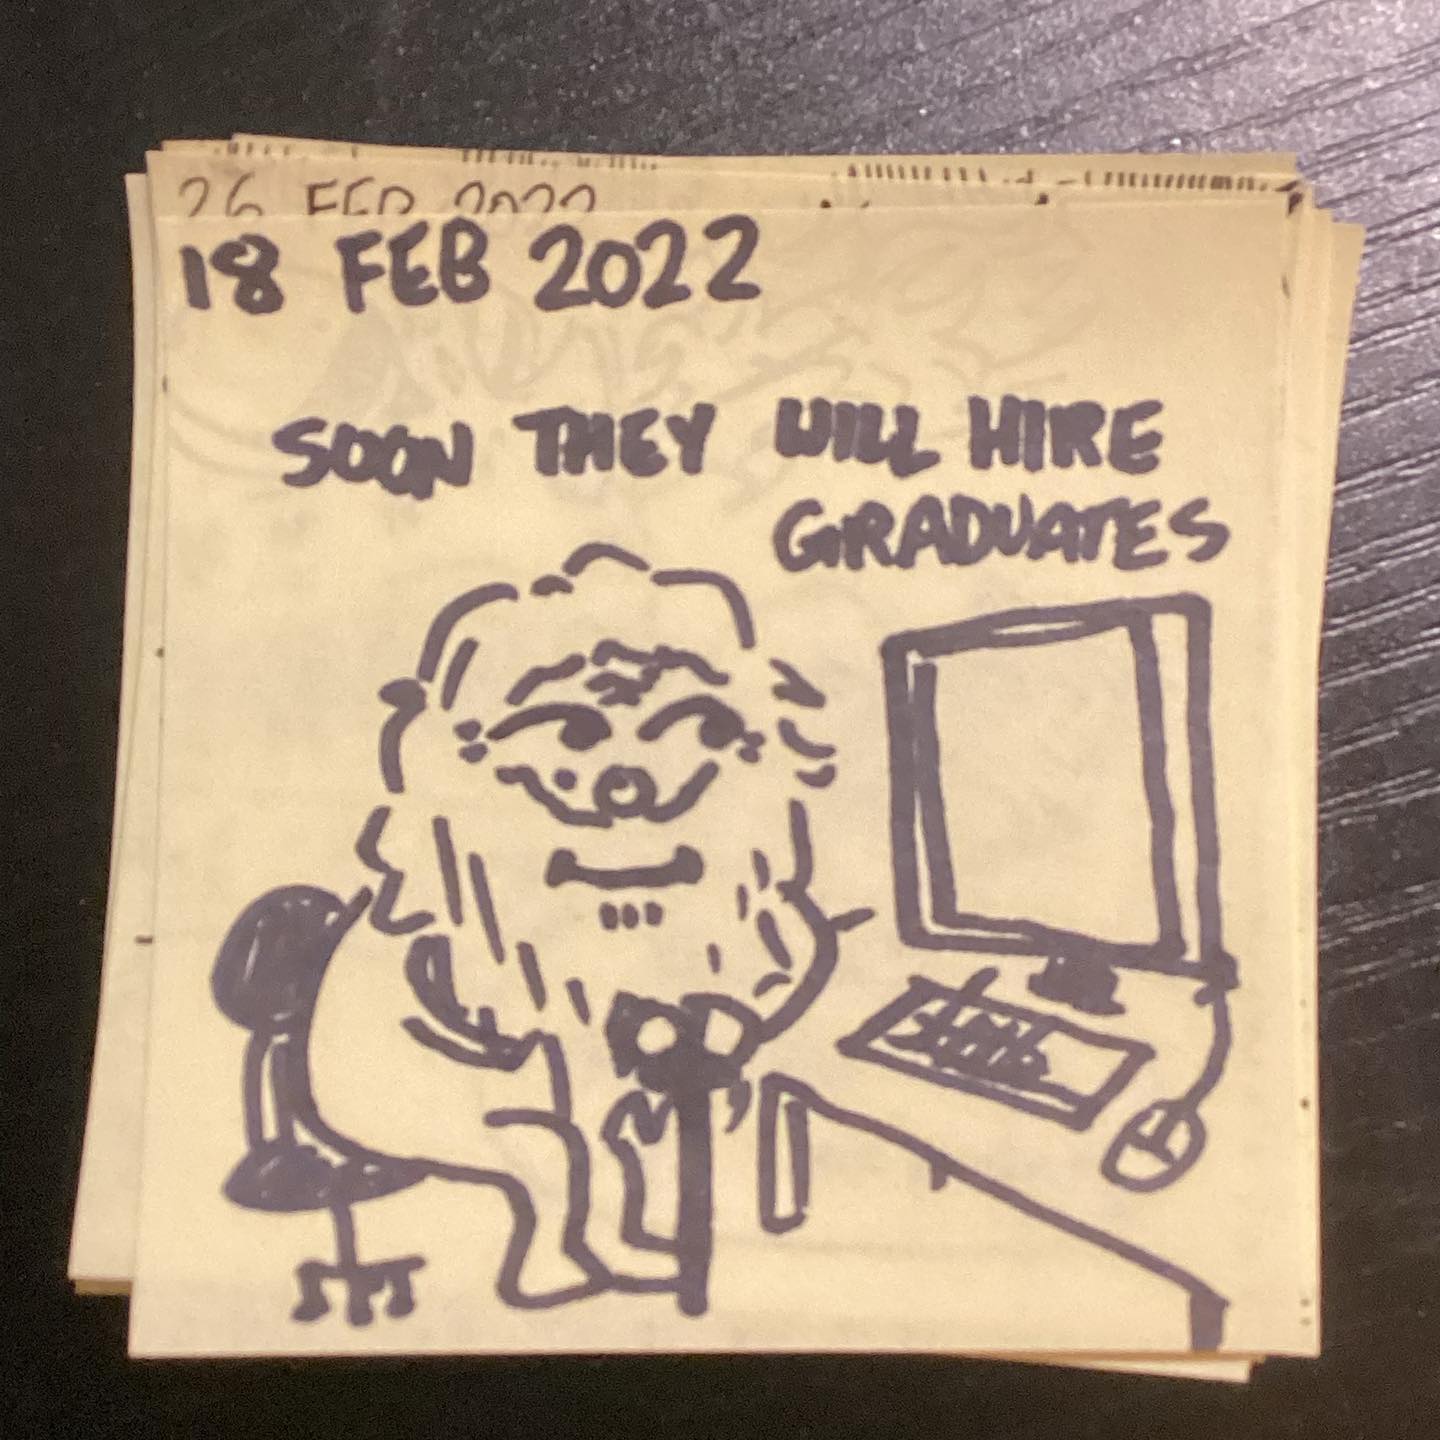 26 FEB 2022
18 FEB 2022
SOON THEY WILL HIRE
GRADUATES